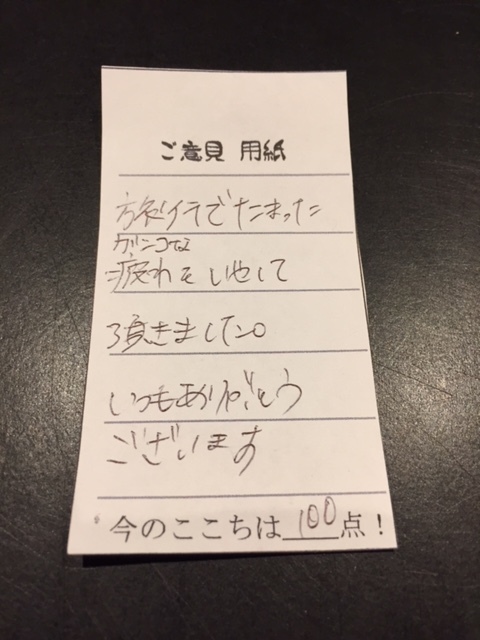 ご意見 用紙
旅行でたまった
ガンコな
疲れをいやして
頂きました。
いつもありがとう
ございます
今のここちは100点！